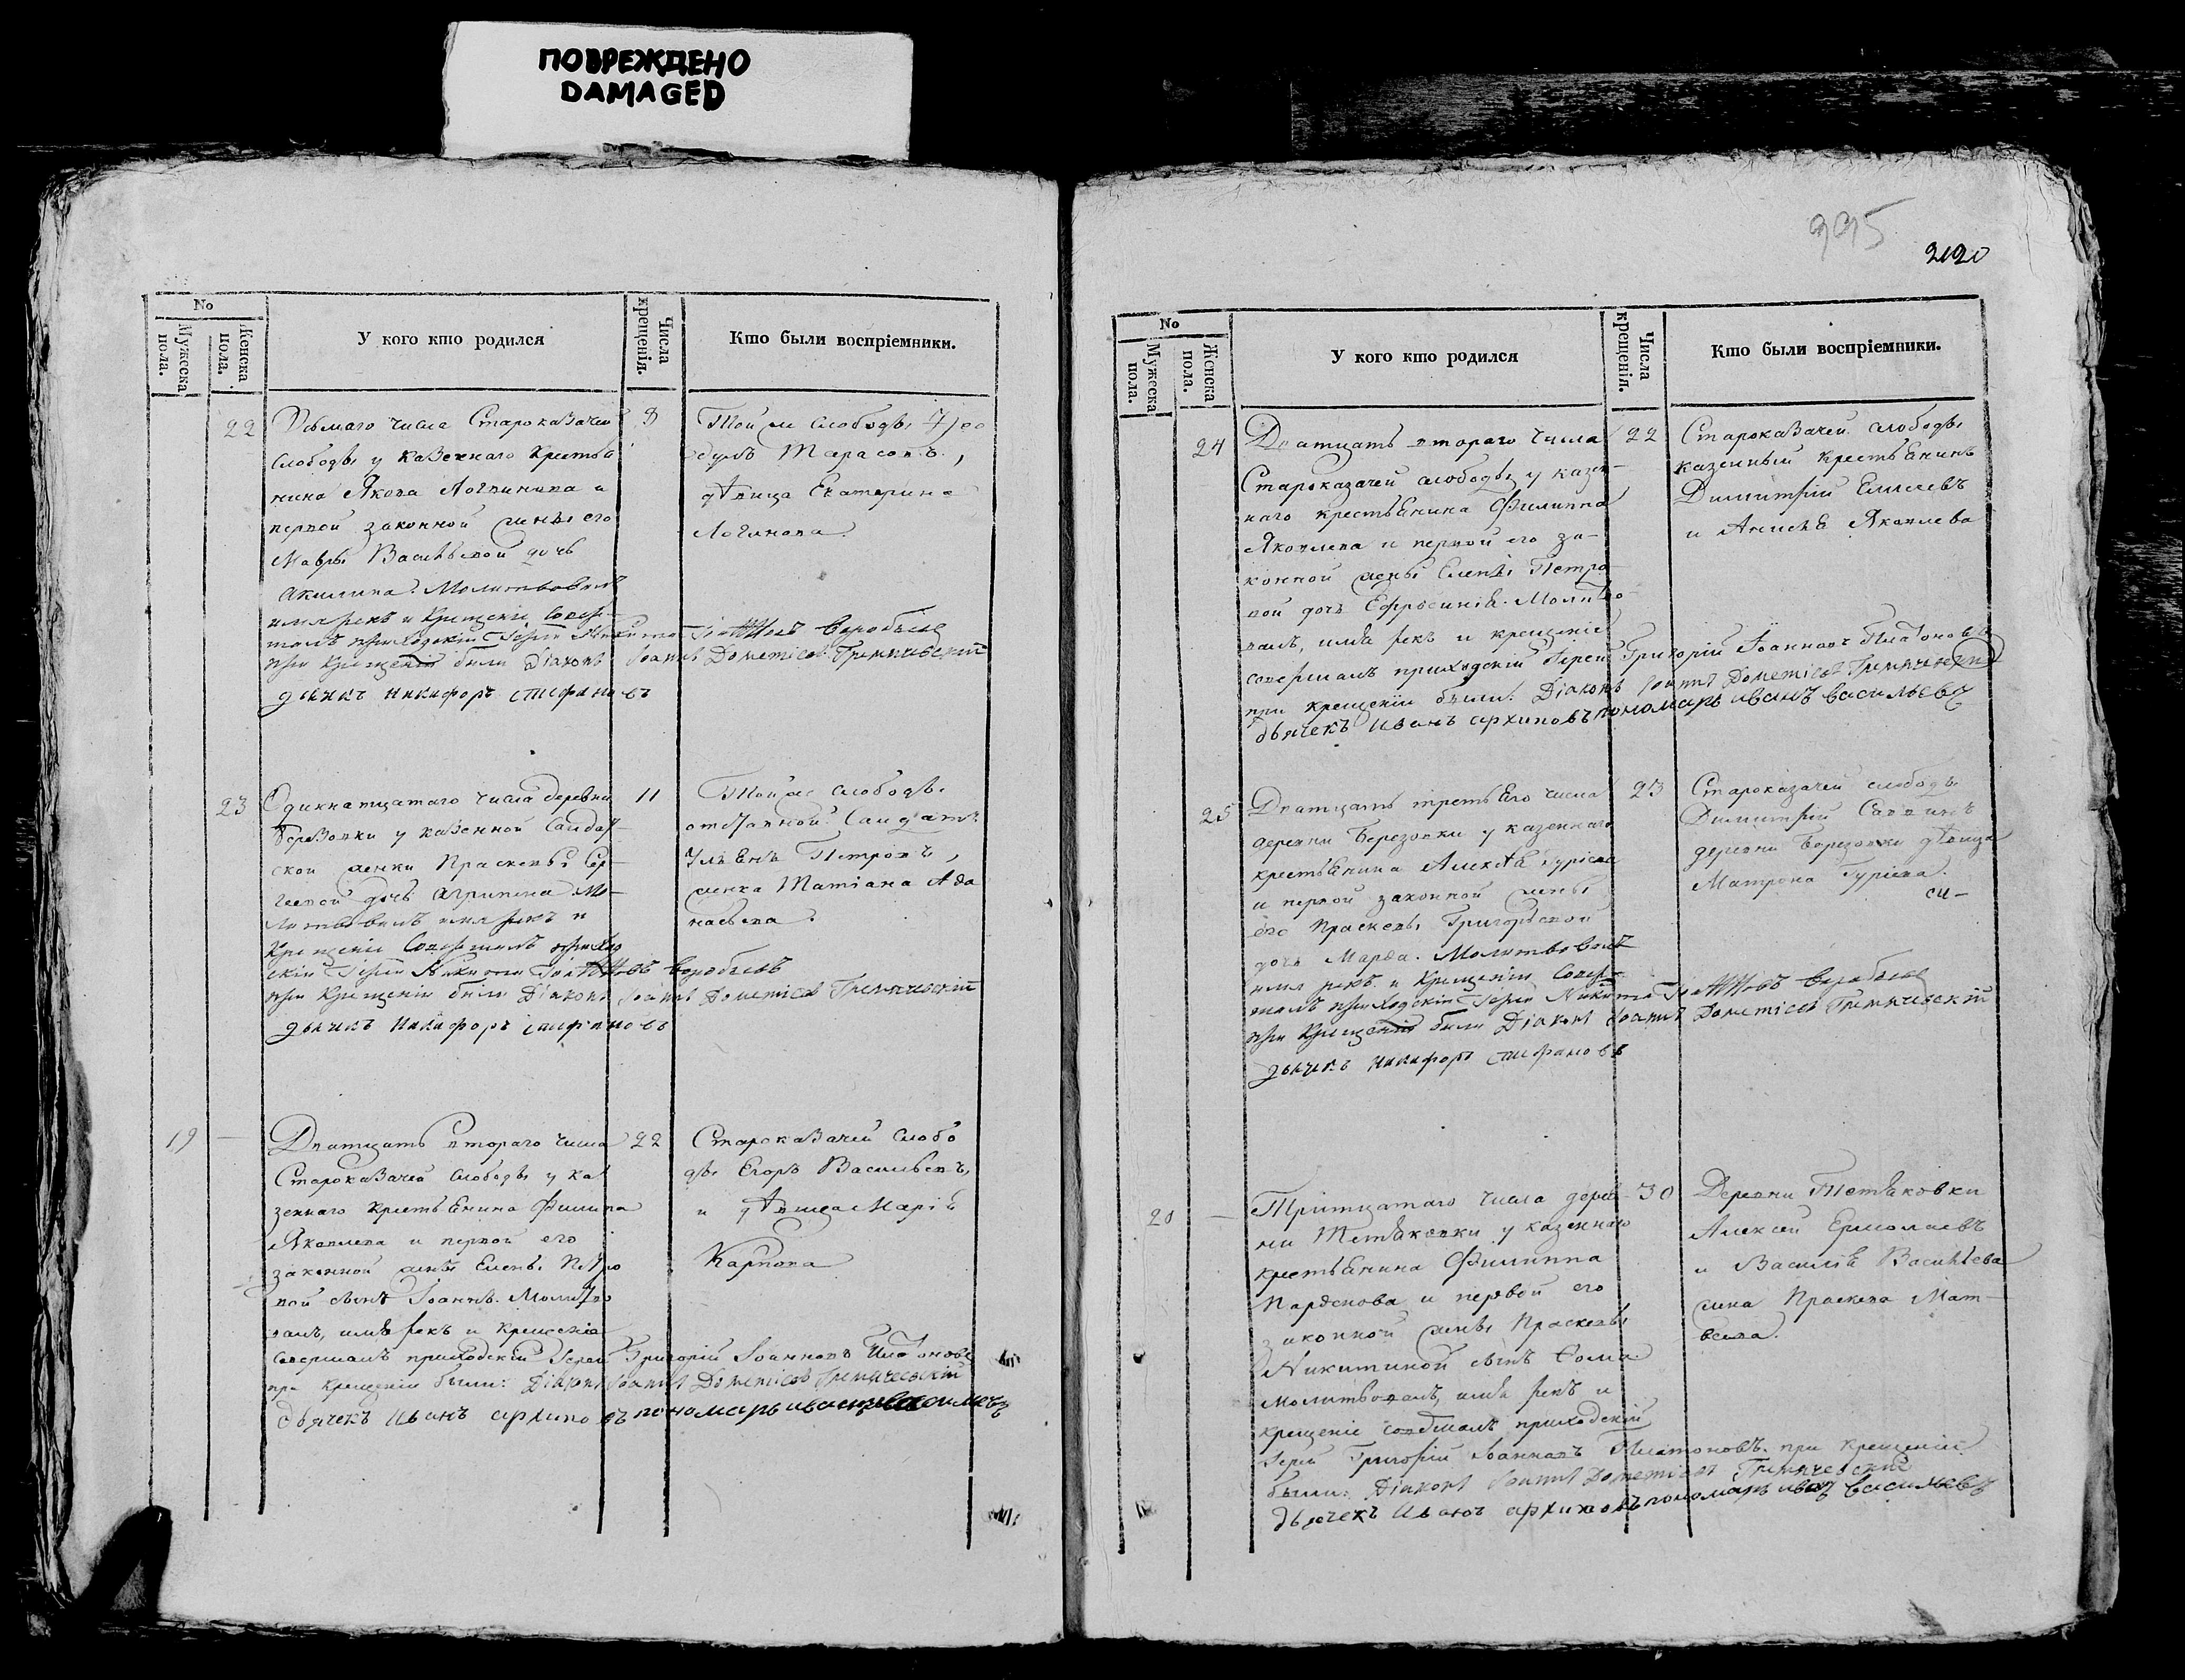 ПОВРЕЖДЕНО
DAMAGED
No
Мужеска пола.
Женска пола.
У кого кто родился
Числа крещенія.
Кто были воспріемники.
22
Осьмаго числа Староказачей
слободы у казеннаго крестья
нина Якова Логвинова и
первой законной жены его
Мавры Васильевой дочь
Акилина. Молитвовалъ
имя рекъ и крещеніе совер-
шалъ приходскій Іерей Никита Іоанновъ Воробьевъ
при крещеніи были Діаконъ Іоаннъ Дометіевъ Гремячевскій
дьячекъ Никифоръ Стефановъ
8
Той же слободы
Тарасовъ,
дѣвица Екатерина
Логинова.
23
Одиннатцатаго числа деревни
Березовки у казенной Салдат-
ской женки Прасковьи Сер-
геевой дочь Агрипина Мо-
литвовалъ имя рекъ и
крещеніе совершалъ приход
скій Іерей Никита Іоанновъ Воробьевъ
при крещеніи были Діаконъ Іоаннъ Дометіевъ Гремячевскій
дьячекъ Никифоръ Стефановъ
11
Той же слободы
отставной Салдатъ
Ульянъ Петровъ,
женка Татіана Афа
насьева.
19
Дватцать втораго числа
Староказачей слободы у ка
зеннаго крестьянина Филипа
Яковлева и первой его
законной жены Елены Петро
вой сынъ Іоаннъ. Молитво
валъ, имя рекъ и крещеніе
совершалъ приходскій Іерей Григорій Іоанновъ Платоновъ
при крещеніи были: Діаконъ Іоаннъ Дометіевъ Гремячевскій
дьячекъ Иванъ Архиповъ пономарь Иванъ
22
Староказачей слобо
ды Егоръ Васильевъ,
и дѣвица Марія
Карпова
995
No
Мужеска пола.
Женска пола.
У кого кто родился
Числа крещенія.
Кто были воспріемники.
24
Дватцать втораго числа
Староказачей слободы у казен-
наго крестьянина Филиппа
Яковлева и первой его за-
конной жены Елены Петро
вой дочь Ефросинія. Молитво-
валъ, имя рекъ и крещеніе
совершалъ приходскій Іерей Григорій Іоанновъ Платоновъ
при крещеніи были: Діаконъ Іоаннъ Дометіевъ Гремячевскій
дьячекъ Иванъ Архиповъ пономарь Иванъ Васильевъ
22
Староказачей слободы
казенный крестьянинъ
Димитрій Елисеевъ
и Анисья Яковлева
25
Дватцать третьяго числа
деревни Березовки у казеннаго
крестьянина Алексѣя Гуріева
и первой законной жены
его Прасковьи Григорьевой
дочь Марфа. Молитвовалъ
имя рекъ и крещеніе совер-
шалъ приходскій Іерей Никита Іоанновъ Воробьевъ
при крещеніи были Діаконъ Іоаннъ Дометіевъ Гремячевскій
дьячекъ Никифоръ Стефановъ
23
Староказачей слободы
Димитрій Саввинъ
деревни Березовки дѣвица
Матрона Гуріева.
20
Тритцатаго числа дерев-
ни Тетяковки у казеннаго
крестьянина Филиппа
Парфенова и первой его
законной жены Прасковьи
Никитиной сынъ Фома
молитвовалъ, имя рекъ и
крещеніе совершалъ приходскій
Іерей Григорій Іоанновъ Платоновъ. при крещеніи
были: Діаконъ Іоаннъ Дометіевъ Гремячевскій
дьячекъ Иванъ Архиповъ пономарь Иванъ Васильевъ
30
Деревни Тетяковки
Алексей Ермолаевъ
и Василія Васильева
жена Прасковья Мат-
веева.